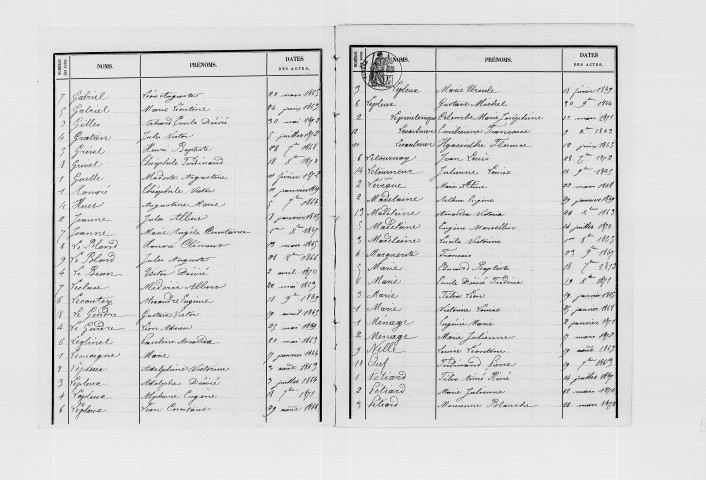 NUMÉROS des actes. NOMS. PRÉNOMS. DATES DES ACTES.
7 Gabriel Léon Auguste 20 mars 1865
5 Gabriel Marie Léontine
3 Gilles Édouard Emile Désiré 30 mai 1872
4 Gratan Jules Victor 5 juillet 1872
5 Grevel Henri Baptiste 28 7bre 1868
8 Grevel Théophile Ferdinand 18 Xbre 1872
1 Guelle Modeste Augustine 11 février 1872
1 Honoré Théophile Victor 11 janvier
4 Hues Augustine Marie 5 7bre 1864
2 Jeanne Jules Albert 18 janvier
7 Jeanne Marie Angèle Constance 1er Xbre
6 Le Blond Honoré Clément 13 mars 1865
9 Le Blond Jules Auguste 28 8bre 1866
4 Le Brun Victor Désiré 2 avril 1870
7 Lecluse Médéric Albert 20 mai 1863
6 Lecoutey Alexandre Eugène 18 9bre 1869
8 Le Gendre Gustave Victor 19 avril 1865
4 Le Gendre Léon Adrien 25 mai 1869
6 Léglinel Pauline Amanda 20 mai 1863
1 Lemoigne Marie 7 janvier 1864
8 Lépleux Adolphine Victorine 3 août 1863
3 Lépleux Adolphe Désiré 3 juillet 1864
4 Lépleux Alphonse Eugène 18 7bre 1871
6 Lépleux Léon Constant 29 août 1866
NUMÉROS des actes. NOMS. PRÉNOMS. DATES DES ACTES.
9 Lépleux Marie Ursule 18 février 1869
6 Lépleux Gustave Michel 30 9bre 1864
2 Colombe Marie Joséphine 12 mars 1871
10 Lecouturier Françoise 9 1863
11 Lecouturier Hyacinthe Florence 10 juin 1865
6 Letournay Jean Louis 28 7bre 1872
14 Letourneur Julienne Louise 14 9bre 1865
2 Lévêque Marie Aline 22 mars 1868
2 Madelaine Arthur Eugène 29 janvier
13 Madeleine Amanda Victoria 26 Xbre 1863
5 Madelaine Eugène Marcellin 14 juillet 1870
3 Madelaine Lucile Victorine 1er 8bre 1865
6 Marguerite François 23 9bre 1869
5 Marie Édouard Baptiste 18 7bre
8 Marie Emile Désiré Frédéric 29 Xbre 1871
3 Marie Félix Léon 19 janvier 1865
1 Marie Victorine Louise 31 janvier 1868
1 Ménage Eugénie Marie 2 janvier 1871
2 Ménage Marie Julienne 7 mars 1872
9 Nelle Louise Léontine 19 août 1863
10 Ouf Ferdinand Louis 19 7bre 1863
1 Pétiard Félix Aimé Réné 14 juillet
2 Pétiard Marie Julienne 18 mars 1870
3 Pétiard Marianne Blanche 22 mars 1872